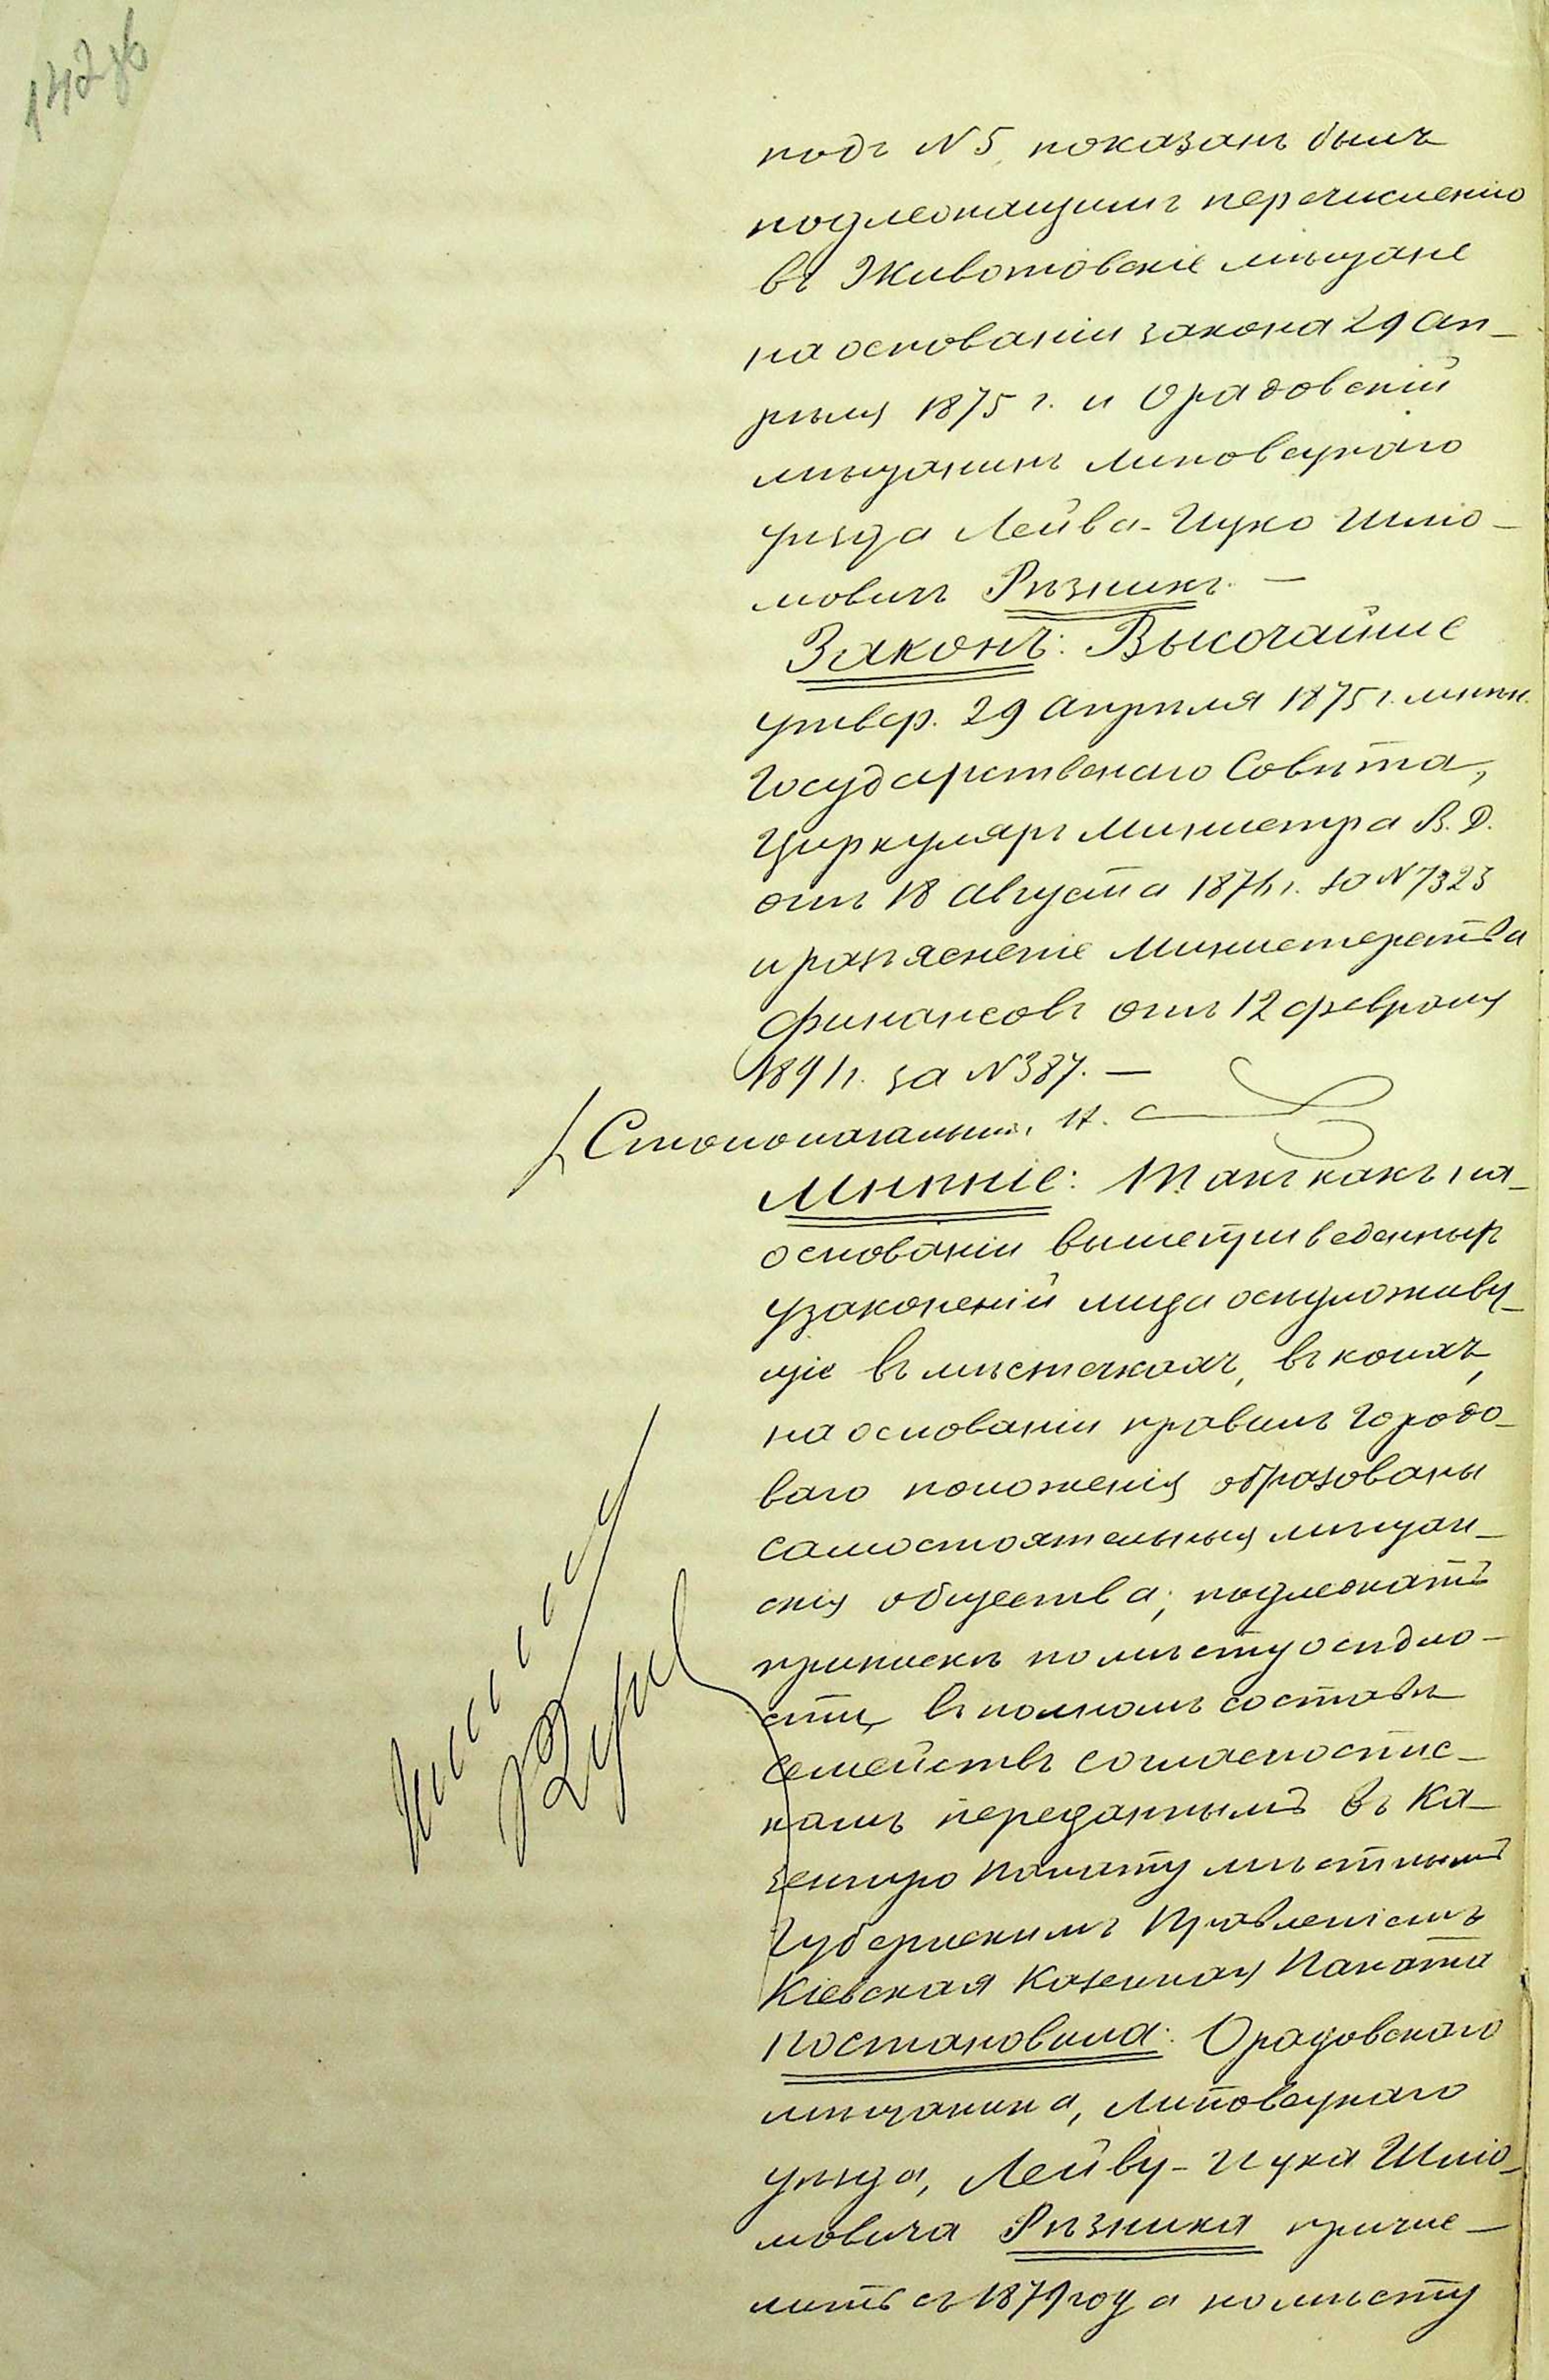 142 об
подъ N 5, показанъ былъ
подлежащимъ перечисленію
въ Животовскіе мѣщане
на основаніи закона 29 Ап-
рѣля 1875 г. и Орадовскій
мѣщанинъ Липовецкаго
уѣзда Лейба-Ицко Шмю-
мовичъ Рѣзникъ. —
Законъ: Высочайше
утвер. 29 Апрѣля 1875 г. мнѣн.
Государственаго Совѣта,
Циркуляръ Министра В. Д.
отъ 18 Августа 1876 г. за N 7323
и разъясненіе Министерства
Финансовъ отъ 12 февраля
1891 г. за N 387. —
Столоначальникъ
Мнѣніе: Такъ какъ на
основаніи вышеприведенныхъ
узаконеній лица осѣдложиву-
щіе въ мѣстечкахъ, въ коихъ,
на основаніи правилъ Городо-
ваго положенія образованы
самостоятельныя мѣщан-
скія общества, подлежатъ
припискѣ по мѣсту осѣдло-
сти, въ полномъ составѣ
семействъ согласно спис-
камъ переданнымъ въ Ка-
зенную Палату мѣстнымъ
Губернскимъ Правленіемъ
Кіевская Казенная Палата
постановила: Орадовскаго
мѣщанина, Липовецкаго
уѣзда, Лейбу-Ицка Шмю-
мовича Рѣзника причис-
лить съ 1879 года по мѣсту